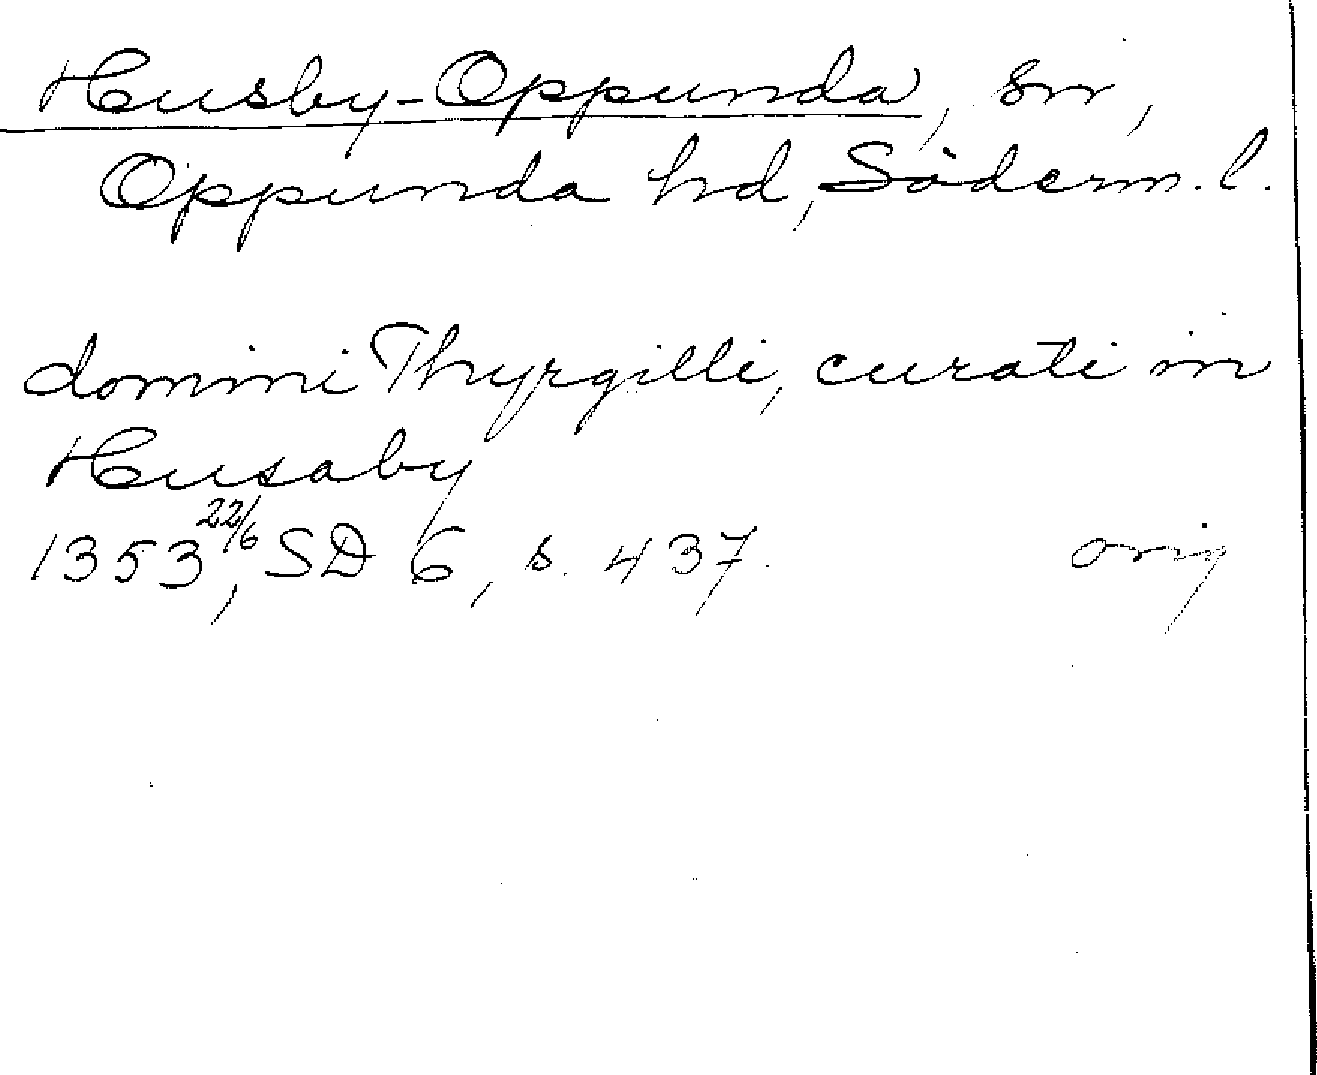 Husby-Oppunda, sn,
Oppunda hd, Söderm. l.
domini Thyrgilli, curati in
Husaby
1353 22/6, SD 6, s. 437. orig